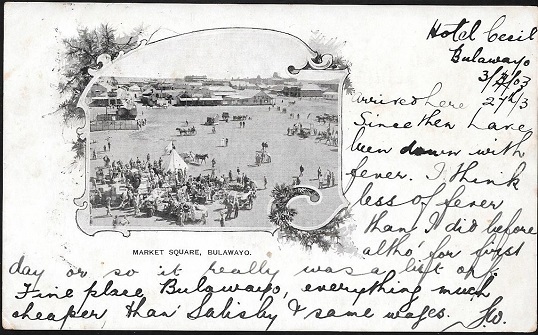 Hotel Cecil
Bulawayo
3/4/03
arrived here 27th/3
Since then have
been down with
fever. I think
less of fever
than I did before
altho' for first
day or so it really was a bit off.
Fine place Bulawayo, everything much
cheaper than Salisby & same wages.
MARKET SQUARE, BULAWAYO.